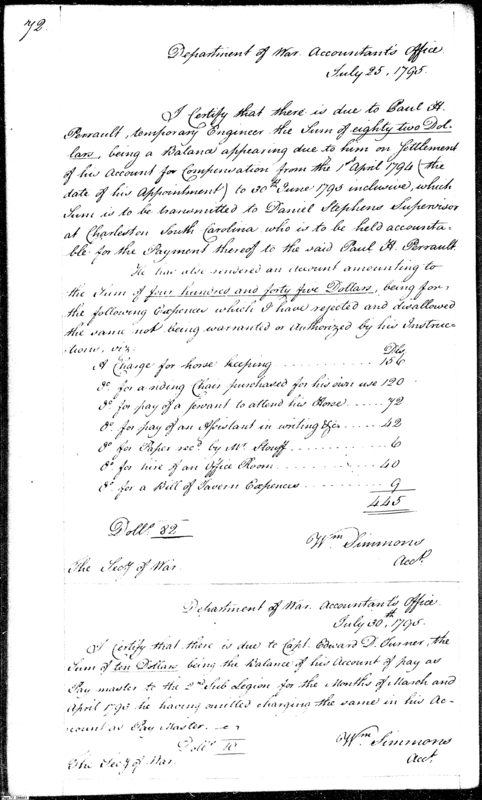 72.
Department of War. Accountant's Office
July 25, 1795.
I Certify that there is due to Paul H.
Perrault, temporary Engineer the Sum of eighty two Dol-
lars, being a Balance appearing due to him on Settlement
of his Account for Compensation from the 1st April 1794 (the
date of his Appointment) to 30th June 1795 inclusive, which
Sum is to be transmitted to Daniel Stephens Supervisor
at Charleston South Carolina who is to be held accounta-
ble for the Payment thereof to the said Paul H. Perrault.
He has also rendered an Account amounting to
the Sum of four hundred and forty five Dollars, being for
the following Expences which I have rejected and disallowed
the same not being warranted or authorized by his Instruc-
tions, viz:
Dls
A Charge for horse keeping 156
do for a riding Chair purchased for his own use 120
do for pay of a servant to attend his Horse 72
do for pay of an Assistant in writing &c 42
do for Paper recd by Mr Stouff 6
do for hire of an Office Room 40
do for a Bill of Tavern Expences 9
445
Dolls 82
Wm Simmons
Acct.
The Secy of War.
Department of War. Accountant's Office
July 30th, 1795.
I Certify that there is due to Capt. Edward D. Turner, the
Sum of ten Dollars being the Balance of his Account of pay as
Pay master to the 2nd Sub Legion for the Months of March and
April 1793 he having omitted charging the same in his Ac-
count as Pay Master.
Dolls 10
Wm Simmons
Acct.
The Secy of War.